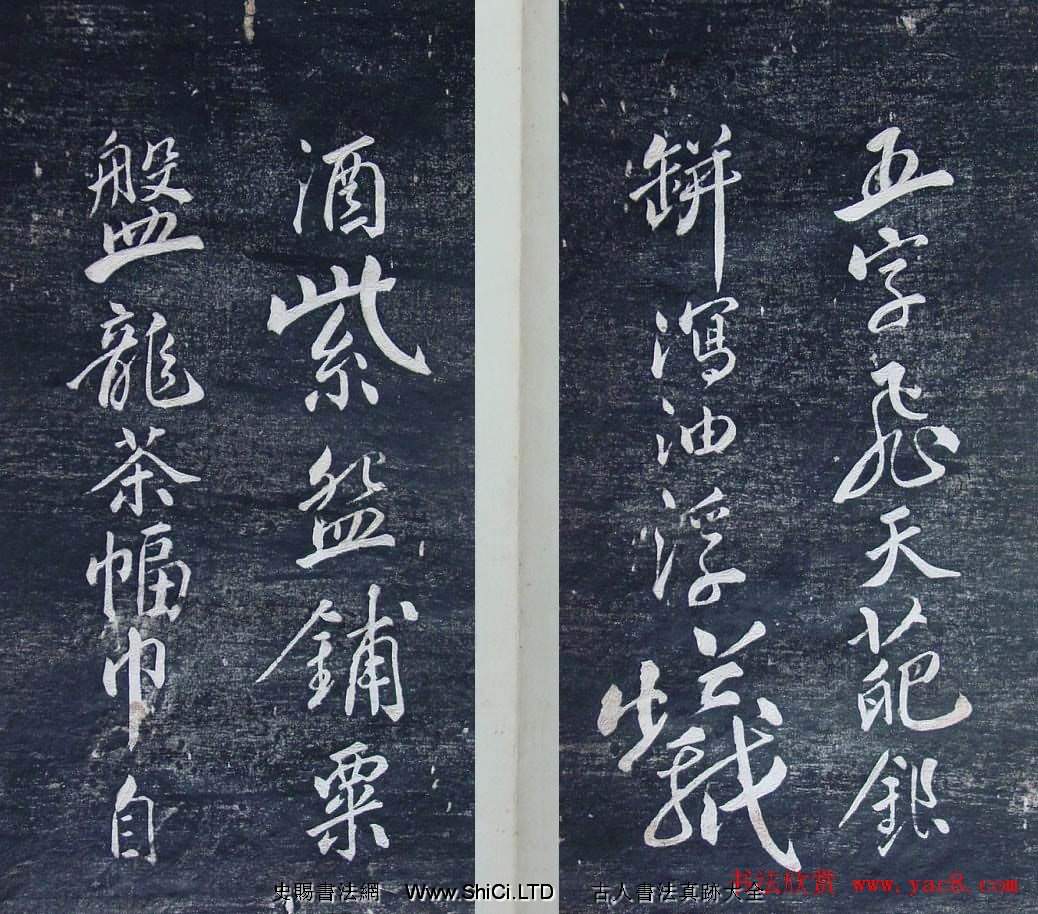 五字飛天葩銀
缾瀉油浮蟻
酒紫盌鋪粟
盤龍茶幅巾自
书法欣赏 www.yac8.com
史賜書法網 Www.ShiCi.LTD 古人書法真跡大全